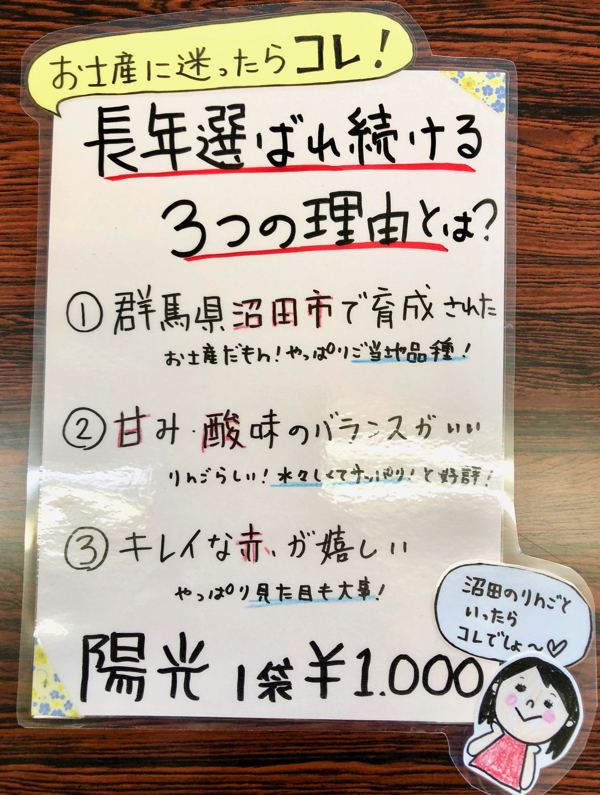 お土産に迷ったらコレ!
長年選ばれ続ける
3つの理由とは?
①群馬県沼田市で育成された
お土産だもん!やっぱりご当地品種!
②甘み・酸味のバランスがいい
りんごらしい!水々しくてサッパリ!と好評!
③キレイな赤が嬉しい
やっぱり見た目も大事!
陽光 1袋¥1.000
沼田のりんごと
いったら
コレでしょ〜♡